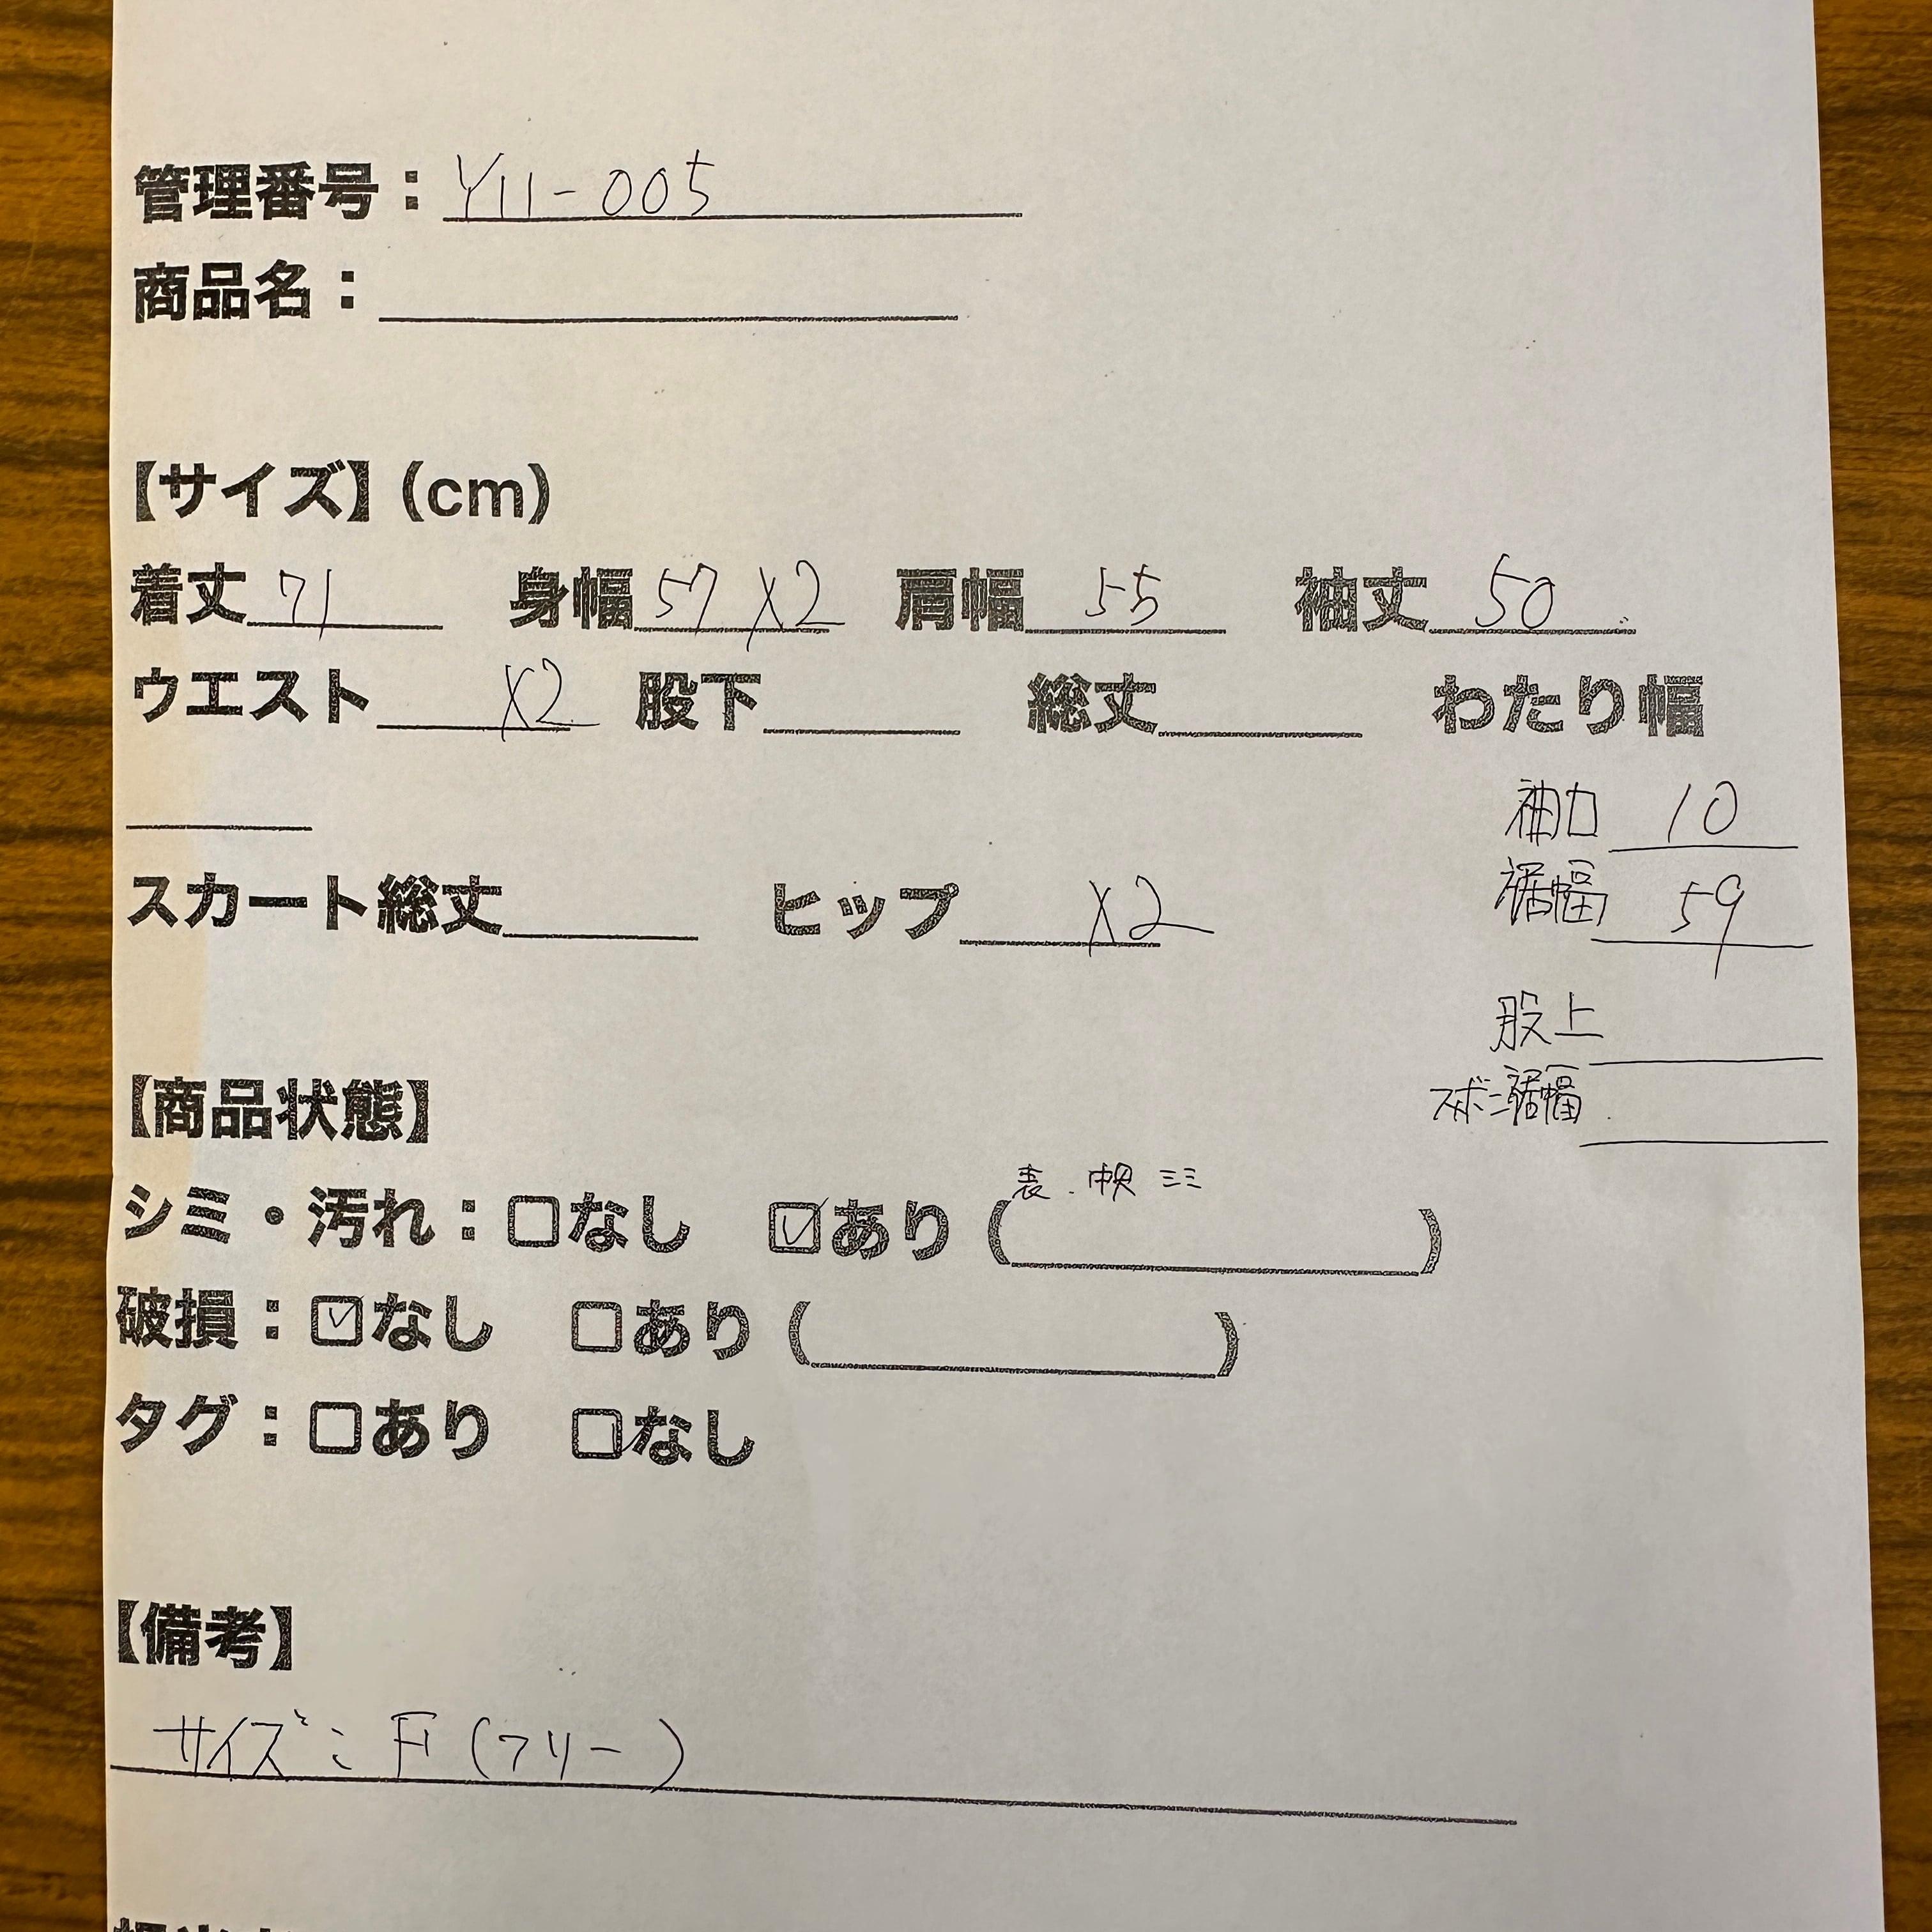 管理番号：Y11-005
商品名：
【サイズ】(cm)
着丈 71 身幅 57 X2 肩幅 55 袖丈 50
ウエスト X2 股下 総丈 わたり幅
袖口 10
裾幅 59
スカート総丈 ヒップ X2
股上
ズボン裾幅
【商品状態】
表.
シミ・汚れ：□なし ☑あり ( )
破損：☑なし □あり ( )
タグ：□あり ☑なし
【備考】
サイズ：F (フリー)